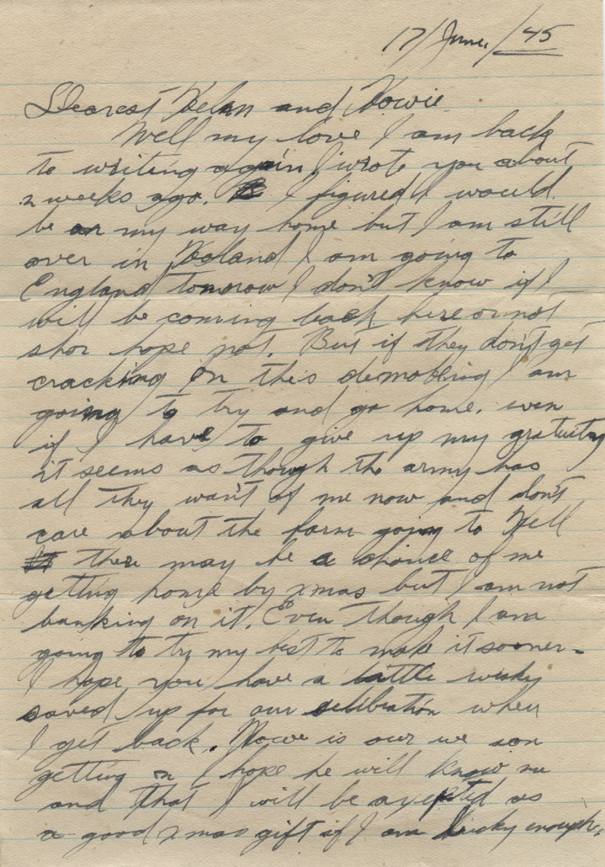 17/June,/45
Dearest Helen and Howie.
Well my love I am back
to writing again, I wrote you about
2 weeks ago. I figured I would
be on my way home but I am still
over in Holand I am going to
England tomorow I don't know if I
will be coming back here or not
shor hope not. But if they don't get
cracking on this demobling I am
going to try and go home. even
if I have to give up my gratuity
it seems as though the army has
all they want of me now and don't
care about the farm going to Hell
there may be a chance of me
getting home by xmas but I am not
banking on it. Even though I am
going to try my best to make it sooner-
I hope you have a battle wisky
saved up for our selibration when
I get back. Howe is our we son
getting on I hope he will know me
and that I will be axepted as
a good xmas gift if I am lucky enough.